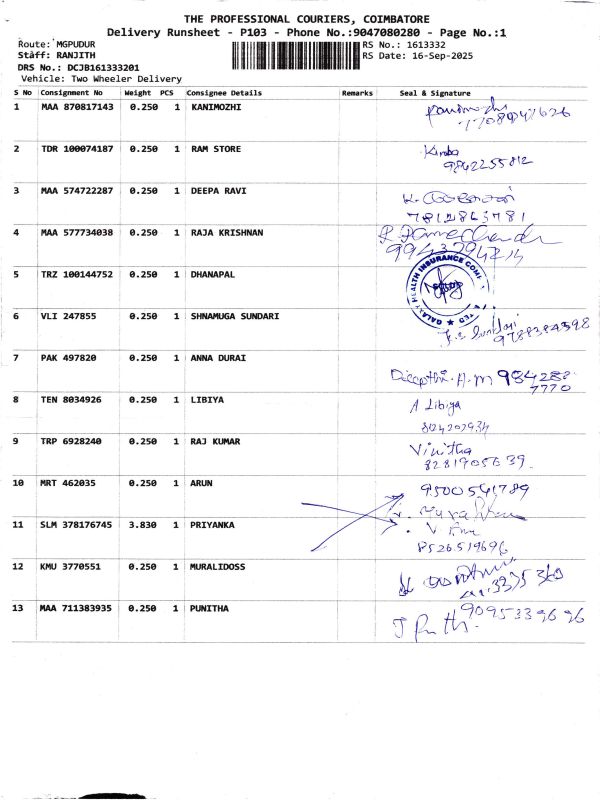 THE PROFESSIONAL COURIERS, COIMBATORE
Delivery Runsheet - P103 - Phone No.:9047080280 - Page No.:1
Route: MGPUDUR RS No.: 1613332
Staff: RANJITH RS Date: 16-Sep-2025
DRS No.: DCJB161333201
Vehicle: Two Wheeler Delivery
S No Consignment No Weight PCS Consignee Details Remarks Seal & Signature
1 MAA 870817143 0.250 1 KANIMOZHI
2 TDR 100074187 0.250 1 RAM STORE
9842255812
3 MAA 574722287 0.250 1 DEEPA RAVI
7812863781
4 MAA 577734038 0.250 1 RAJA KRISHNAN
5 TRZ 100144752 0.250 1 DHANAPAL
GALAXY HEALTH INSURANCE COMP
6 VLI 247855 0.250 1 SHNAMUGA SUNDARI
9788384598
7 PAK 497820 0.250 1 ANNA DURAI
Deepthi. A.M 984288
7770
8 TEN 8034926 0.250 1 LIBIYA
A Libiya
9 TRP 6928240 0.250 1 RAJ KUMAR
Vinitha
8281905639
10 MRT 462035 0.250 1 ARUN
9500541789
11 SLM 378176745 3.830 1 PRIYANKA
8526519696
12 KMU 3770551 0.250 1 MURALIDOSS
13 MAA 711383935 0.250 1 PUNITHA
9095339696